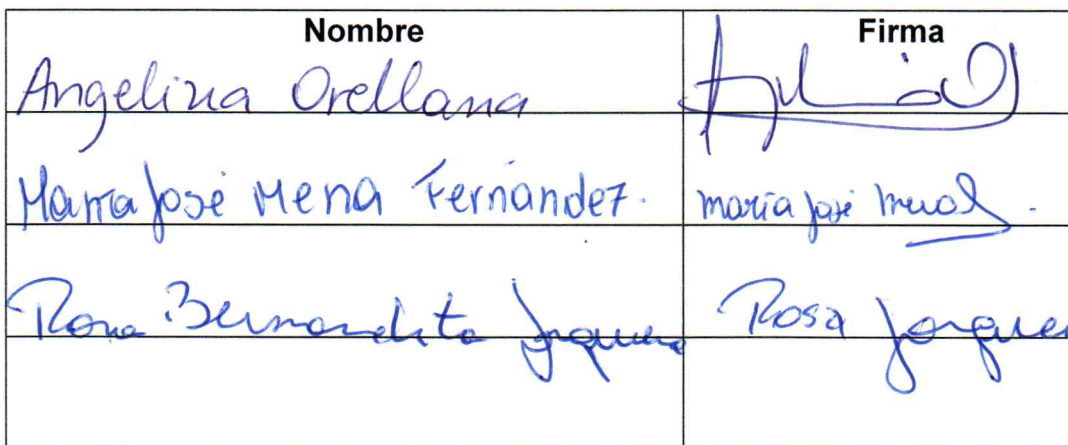 Nombre Firma
Angelina Orellana
María José Mena Fernández. maría josé mena.
Rosa Bernardita Jorquera Rosa Jorquera